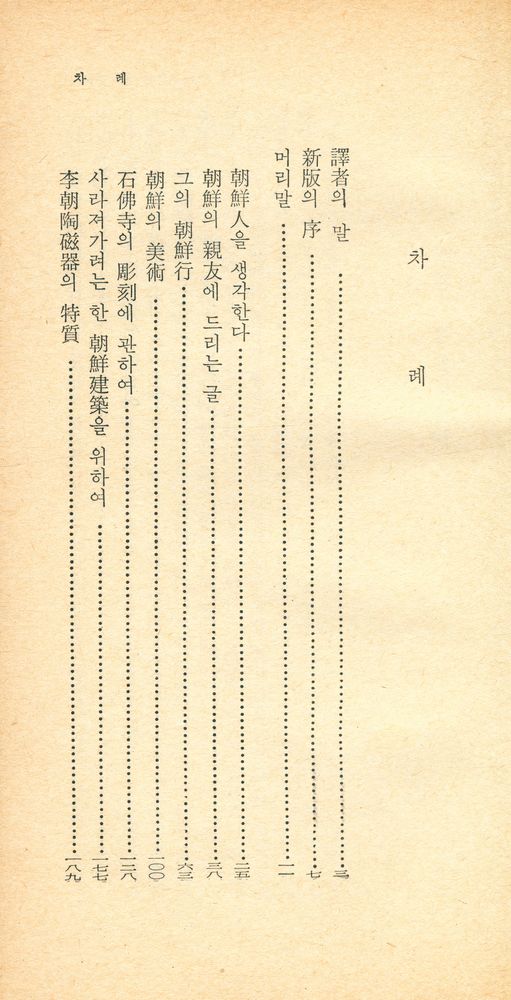 차 례
차 례
譯者의 말 三
新版의 序 七
머리말 一一
朝鮮人을 생각한다 二五
朝鮮의 親友에 드리는 글 三八
그의 朝鮮行 六三
朝鮮의 美術 一〇〇
石佛寺의 彫刻에 관하여 一二八
사라져가려는 한 朝鮮建築을 위하여 一七七
李朝陶磁器의 特質 一八九